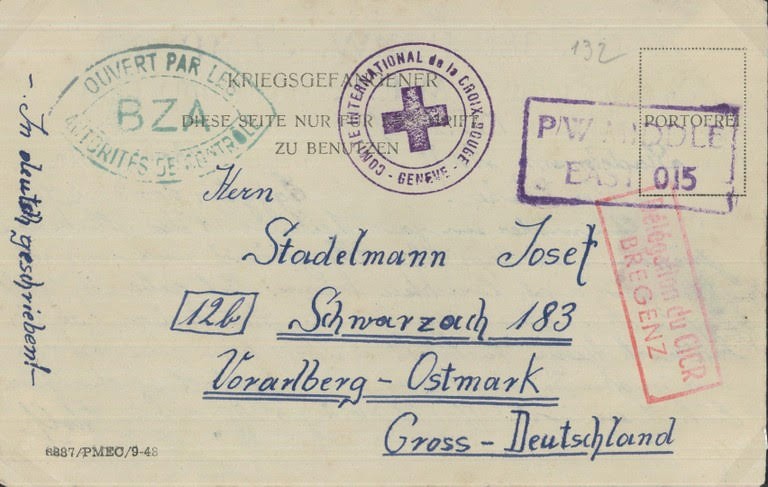 132
OUVERT PAR LES
BZA
AUTORITÉS DE CONTRÔLE
COMITÉ INTERNATIONAL de la CROIX-ROUGE
- GENÈVE -
KRIEGSGEFANGENER
DIESE SEITE NUR FÜR ANSCHRIFT
ZU BENUTZEN
PORTOFREI
P/W MIDDLE
EAST 015
Délégation du CICR
BREGENZ
Herrn
Stadelmann Josef
12b Schwarzach 183
Vorarlberg - Ostmark
Gross - Deutschland
-. In deutsch geschrieben! -
6887/PMEC/9-43